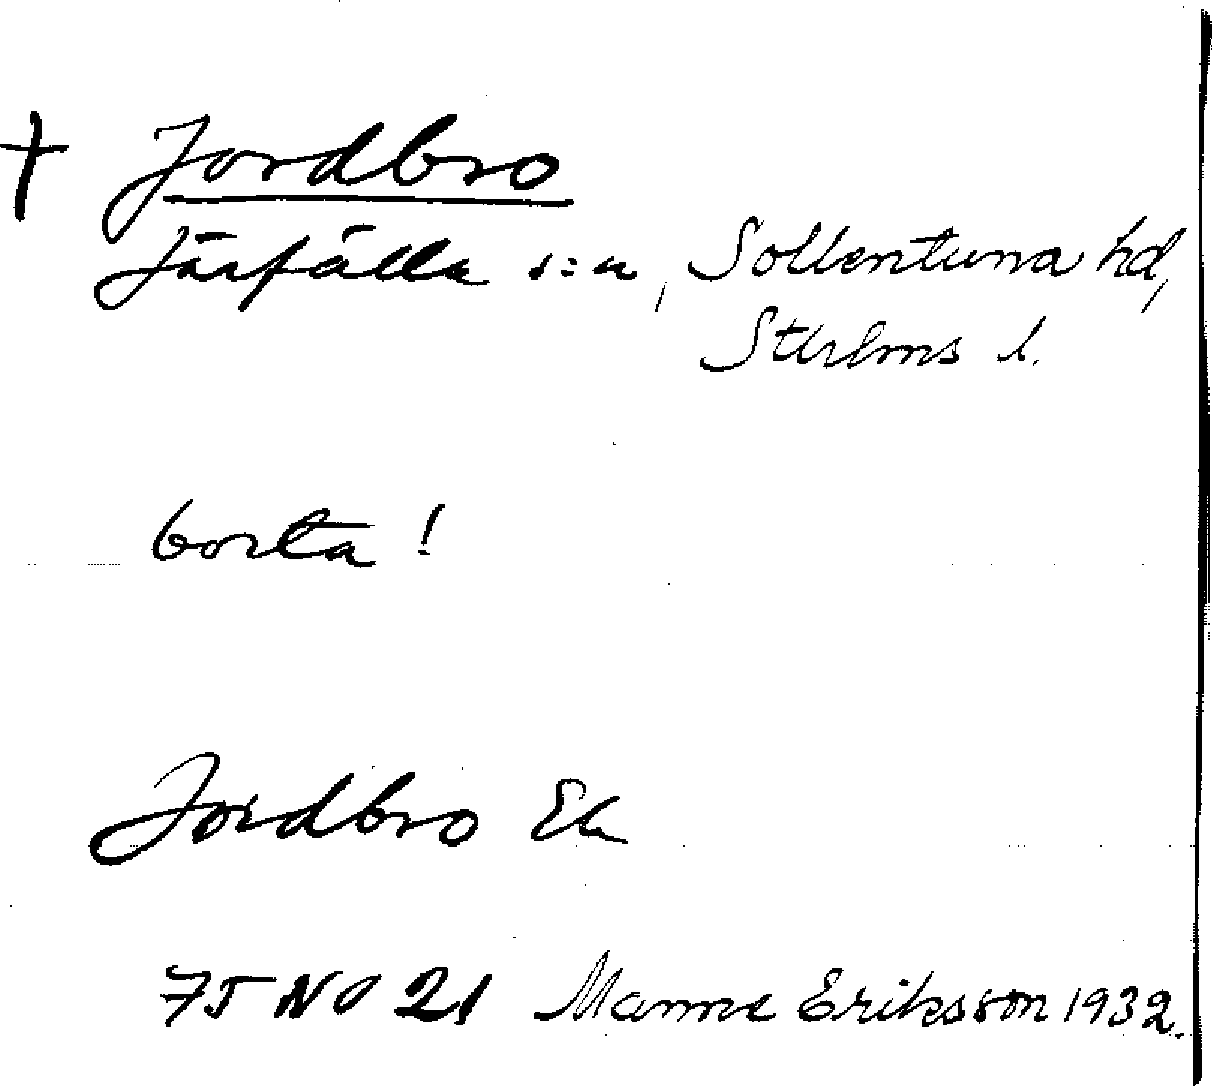 † Jordbro
Järfälla s:n, Sollentuna hd,
Sthlms l.
borta!
Jordbro Ek
75 NO 21 Manne Eriksson 1932.